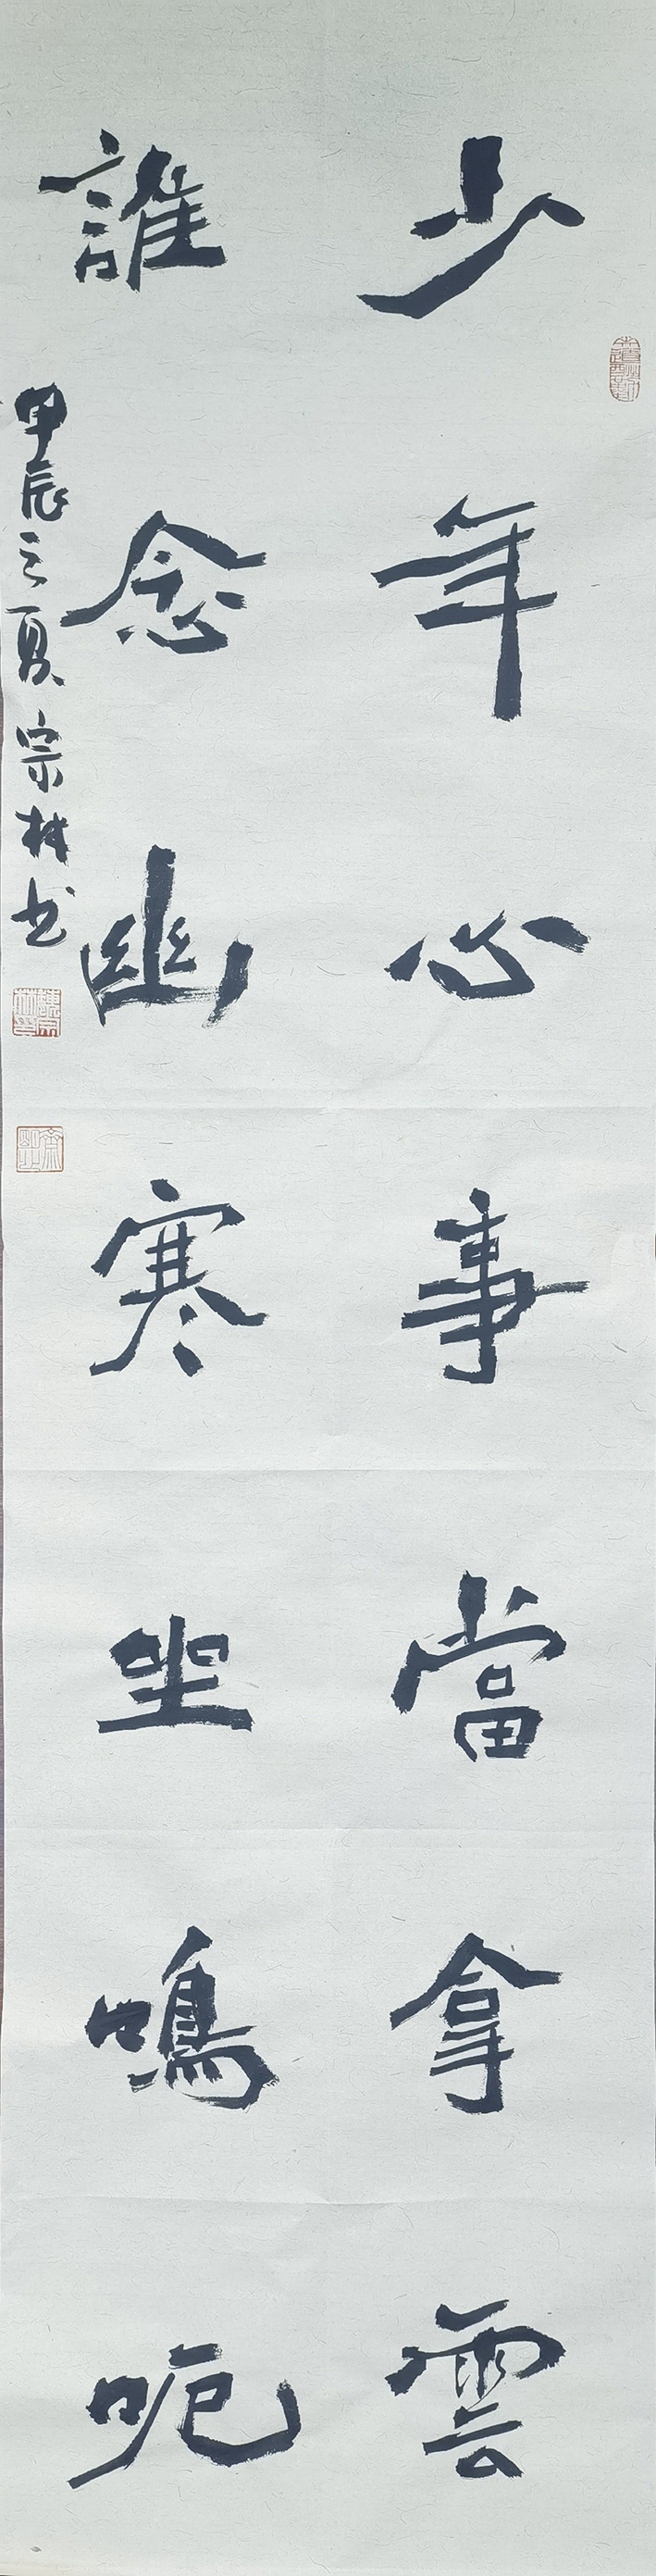 少年心事當拿雲
誰念幽寒坐鳴呃
甲辰之夏宗林书